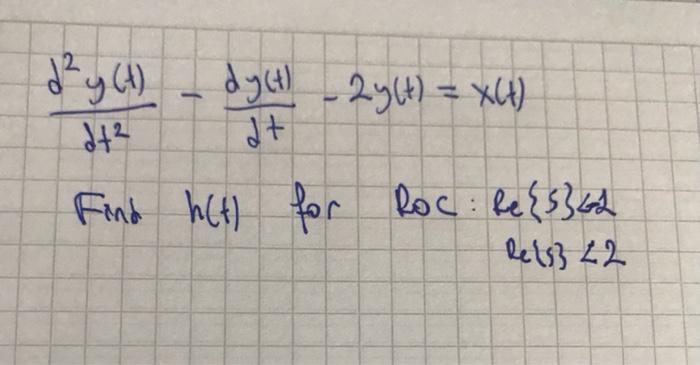 d²y(t)/dt² - dy(t)/dt - 2y(t) = x(t)
Find h(t) for ROC: Re{s}
Re{s} <2